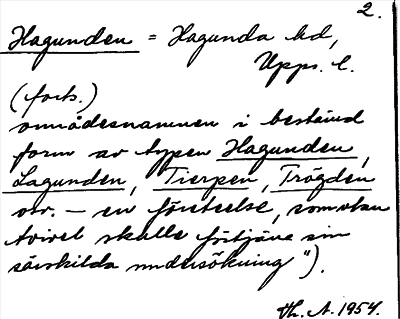 2.
Hagunden = Hagunda hd,
Upps. l.
(forts.)
områdesnamnen i bestämd
form av typen Hagunden,
Lagunden, Tierpen, Trögden
osv. – en företeelse, som utan
tvivel skulle förtjäna sin
särskilda undersökning").
Th. A. 1954.